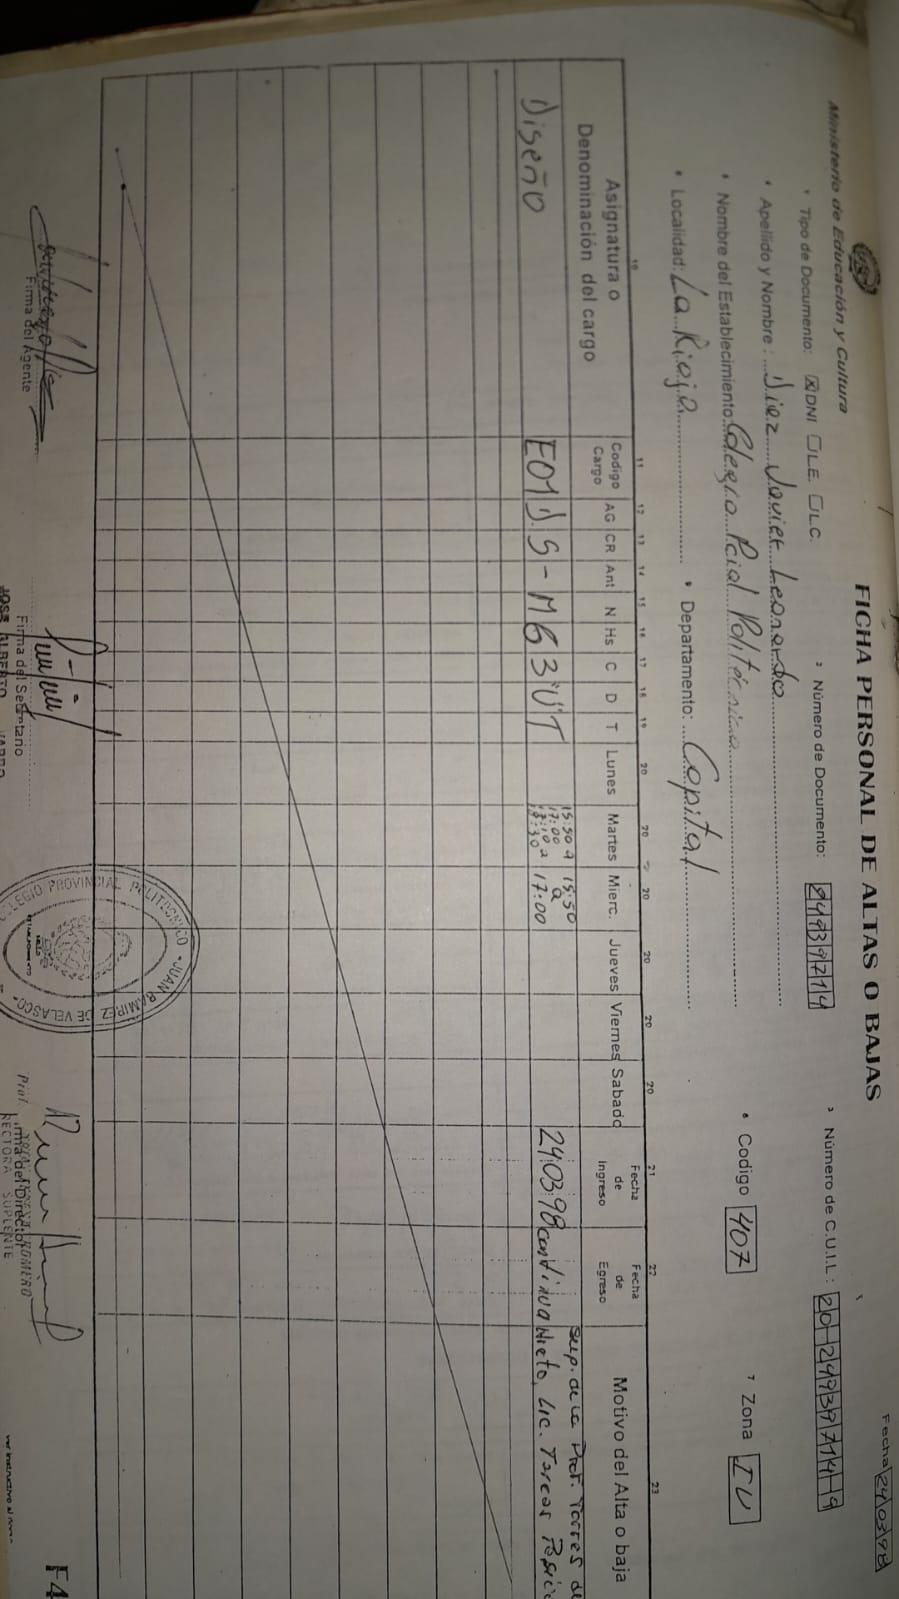 Fecha 24/03/98
Ministerio de Educación y Cultura
FICHA PERSONAL DE ALTAS O BAJAS
Tipo de Documento: ☒DNI ☐LE. ☐LC. Número de Documento: 24939714 Número de C.U.I.L.: 20-24939714-9
Apellido y Nombre: Diez Javier Leonardo
Nombre del Establecimiento: Colegio Pcial Politécnico Codigo 407 Zona IV
Localidad: La Rioja Departamento: Capital
10 11 12 13 14 15 16 17 18 19 20 20 20 20 20 20 21 22 23
Asignatura o Denominación del cargo Codigo Cargo AG CR Ant N Hs C D T Lunes Martes Mierc. Jueves Viernes Sabado Fecha de Ingreso Fecha de Egreso Motivo del Alta o baja
Sup. de la Prof. Torres de
Diseño E01 D S - M 6 3 "U" T 15:50 a 17:00 17:10 a 18:30 15:50 a 17:00 24 03 98 continua Nieto, Lic. Tareas
Firma del Agente
Firma del Secretario
JOSE ALBERTO
COLEGIO PROVINCIAL POLITECNICO "JUAN RAMIREZ DE VELASCO"
Firma del Director
Prof. ROMERO
RECTORA SUPLENTE
F4